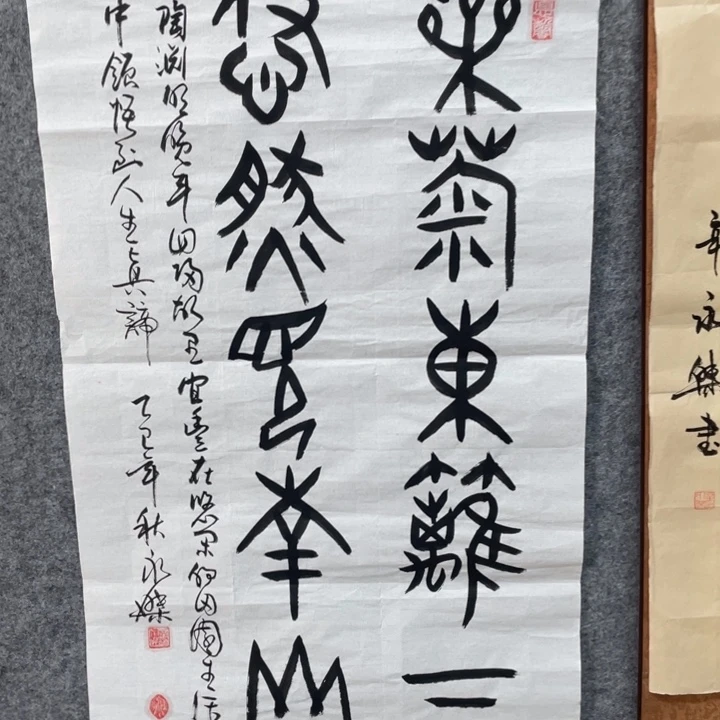 采菊東籬下
悠然見南山
陶渊明晚年回归故里在悠闲的田园生活
中领悟到人生真諦 乙巳年秋永傑
永傑書